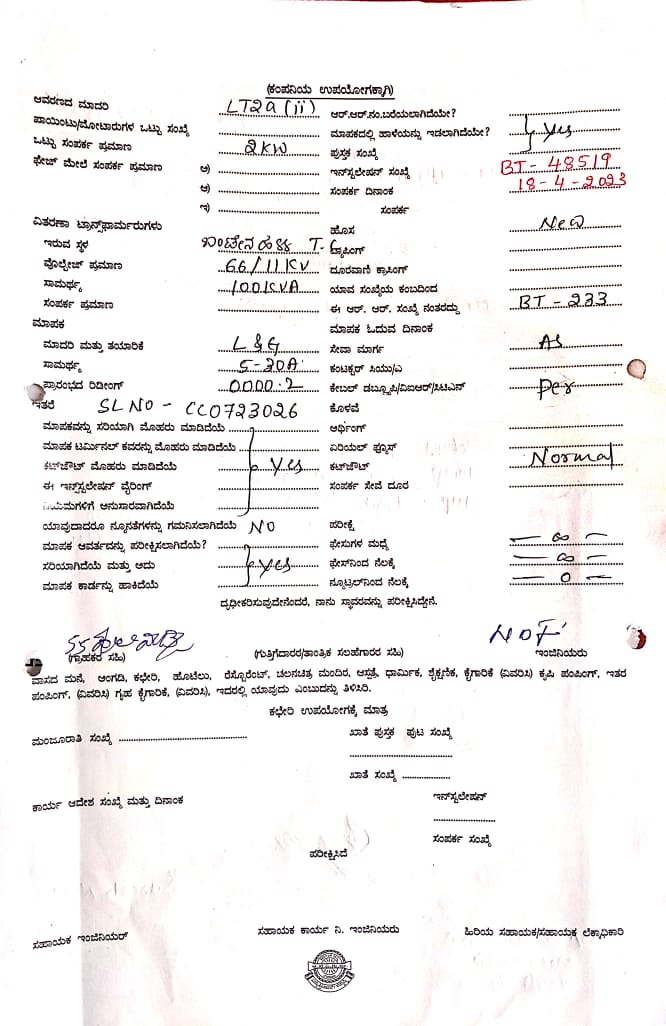 (ಕಂಪನಿಯ ಉಪಯೋಗಕ್ಕಾಗಿ)
ಆವರಣದ ಮಾದರಿ LT2a (ii) ಆರ್.ಆರ್.ನಂ.ಬರೆಯಲಾಗಿದೆಯೇ?
ಪಾಯಿಂಟು/ಮೋಟಾರುಗಳ ಒಟ್ಟು ಸಂಖ್ಯೆ ಮಾಪಕದಲ್ಲಿ ಹಾಳೆಯನ್ನು ಇಡಲಾಗಿದೆಯೇ? yes
ಒಟ್ಟು ಸಂಪರ್ಕ ಪ್ರಮಾಣ 2KW ಪುಸ್ತಕ ಸಂಖ್ಯೆ
ಫೇಜ್ ಮೇಲೆ ಸಂಪರ್ಕ ಪ್ರಮಾಣ ಅ) ಇನ್‌ಸ್ಟಲೇಷನ್ ಸಂಖ್ಯೆ BT- 48519
ಆ) ಸಂಪರ್ಕ ದಿನಾಂಕ 18-4-2023
ಇ) ಸಂಪರ್ಕ
ವಿತರಣಾ ಟ್ರಾನ್ಸ್‌ಫಾರ್ಮರುಗಳು ಹೊಸ New
ಇರುವ ಸ್ಥಳ T.C ಟ್ಯಾಪಿಂಗ್
ವೊಲ್ಟೇಜ್ ಪ್ರಮಾಣ 66/11KV ದೂರವಾಣಿ ಕ್ರಾಸಿಂಗ್
ಸಾಮರ್ಥ್ಯ 100KVA ಯಾವ ಸಂಖ್ಯೆಯ ಕಂಬದಿಂದ
ಸಂಪರ್ಕ ಪ್ರಮಾಣ ಈ ಆರ್. ಆರ್. ಸಂಖ್ಯೆ ನಂತರದ್ದು BT-233
ಮಾಪಕ ಮಾಪಕ ಓದುವ ದಿನಾಂಕ
ಮಾದರಿ ಮತ್ತು ತಯಾರಿಕೆ L&G ಸೇವಾ ಮಾರ್ಗ As
ಸಾಮರ್ಥ್ಯ 5-20A ಕಂಟಕ್ಟರ್ ಸಿಯು/ಎ
ಪ್ರಾರಂಭದ ರಿಡೀಂಗ್ 0000.2 ಕೇಬಲ್ ಡಬ್ಲ್ಯೂಪಿ/ಏಐಆರ್/ಸಿಟಿಎನ್ per
ಇತರೆ SL NO- CC0723026 ಕೊಳವೆ
ಮಾಪಕವನ್ನು ಸರಿಯಾಗಿ ಮೊಹರು ಮಾಡಿದೆಯೆ ಅರ್ಥಿಂಗ್
ಮಾಪಕ ಟರ್ಮಿನಲ್ ಕವರನ್ನು ಮೊಹರು ಮಾಡಿದೆಯೆ ಏರಿಯಲ್ ಫ್ಯೂಸ್
ಕಟ್‌ಔಟ್ ಮೊಹರು ಮಾಡಿದೆಯೆ yes ಕಟ್‌ಔಟ್ Normal
ಈ ಇನ್‌ಸ್ಟಲೇಷನ್ ವೈರಿಂಗ್ ಸಂಪರ್ಕ ಸೇವೆ ದೂರ
ನಿಯಮಗಳಿಗೆ ಅನುಸಾರವಾಗಿದೆಯೆ
ಯಾವುದಾದರೂ ನ್ಯೂನತೆಗಳನ್ನು ಗಮನಿಸಲಾಗಿದೆಯೆ NO ಪರೀಕ್ಷೆ
ಮಾಪಕ ಆವರ್ತವನ್ನು ಪರೀಕ್ಷಿಸಲಾಗಿದೆಯೆ? ಫೇಸುಗಳ ಮಧ್ಯೆ — ∞ —
ಸರಿಯಾಗಿದೆಯೆ ಮತ್ತು ಅದು yes ಫೇಸ್‌ನಿಂದ ನೆಲಕ್ಕೆ — ∞ —
ಮಾಪಕ ಕಾರ್ಡನ್ನು ಹಾಕಿದೆಯೆ ನ್ಯೂಟ್ರಲ್‌ನಿಂದ ನೆಲಕ್ಕೆ — 0 —
ದೃಢೀಕರಿಸುವುದೇನೆಂದರೆ, ನಾನು ಸ್ಥಾವರವನ್ನು ಪರೀಕ್ಷಿಸಿದ್ದೇನೆ.
(ಗ್ರಾಹಕರ ಸಹಿ) (ಗುತ್ತಿಗೆದಾರರ/ತಾಂತ್ರಿಕ ಸಲಹೆಗಾರರ ಸಹಿ) ಇಂಜಿನಿಯರು
ವಾಸದ ಮನೆ, ಅಂಗಡಿ, ಕಛೇರಿ, ಹೊಟೆಲು, ರೆಸ್ಟೊರೆಂಟ್, ಚಲನಚಿತ್ರ ಮಂದಿರ, ಆಸ್ಪತ್ರೆ, ಧಾರ್ಮಿಕ, ಶೈಕ್ಷಣಿಕ, ಕೈಗಾರಿಕೆ (ವಿವರಿಸಿ) ಕೃಷಿ ಪಂಪಿಂಗ್, ಇತರ
ಪಂಪಿಂಗ್, (ವಿವರಿಸಿ) ಗೃಹ ಕೈಗಾರಿಕೆ, (ವಿವರಿಸಿ), ಇದರಲ್ಲಿ ಯಾವುದು ಎಂಬುದನ್ನು ತಿಳಿಸಿರಿ.
ಕಛೇರಿ ಉಪಯೋಗಕ್ಕೆ ಮಾತ್ರ
ಮಂಜೂರಾತಿ ಸಂಖ್ಯೆ ಖಾತೆ ಪುಸ್ತಕ ಪುಟ ಸಂಖ್ಯೆ
ಖಾತೆ ಸಂಖ್ಯೆ
ಕಾರ್ಯ ಆದೇಶ ಸಂಖ್ಯೆ ಮತ್ತು ದಿನಾಂಕ ಇನ್‌ಸ್ಟಲೇಷನ್
ಸಂಪರ್ಕ ಸಂಖ್ಯೆ
ಪರೀಕ್ಷಿಸಿದೆ
ಸಹಾಯಕ ಇಂಜಿನಿಯರ್ ಸಹಾಯಕ ಕಾರ್ಯ ನಿ. ಇಂಜಿನಿಯರು ಹಿರಿಯ ಸಹಾಯಕ/ಸಹಾಯಕ ಲೆಕ್ಕಾಧಿಕಾರಿ